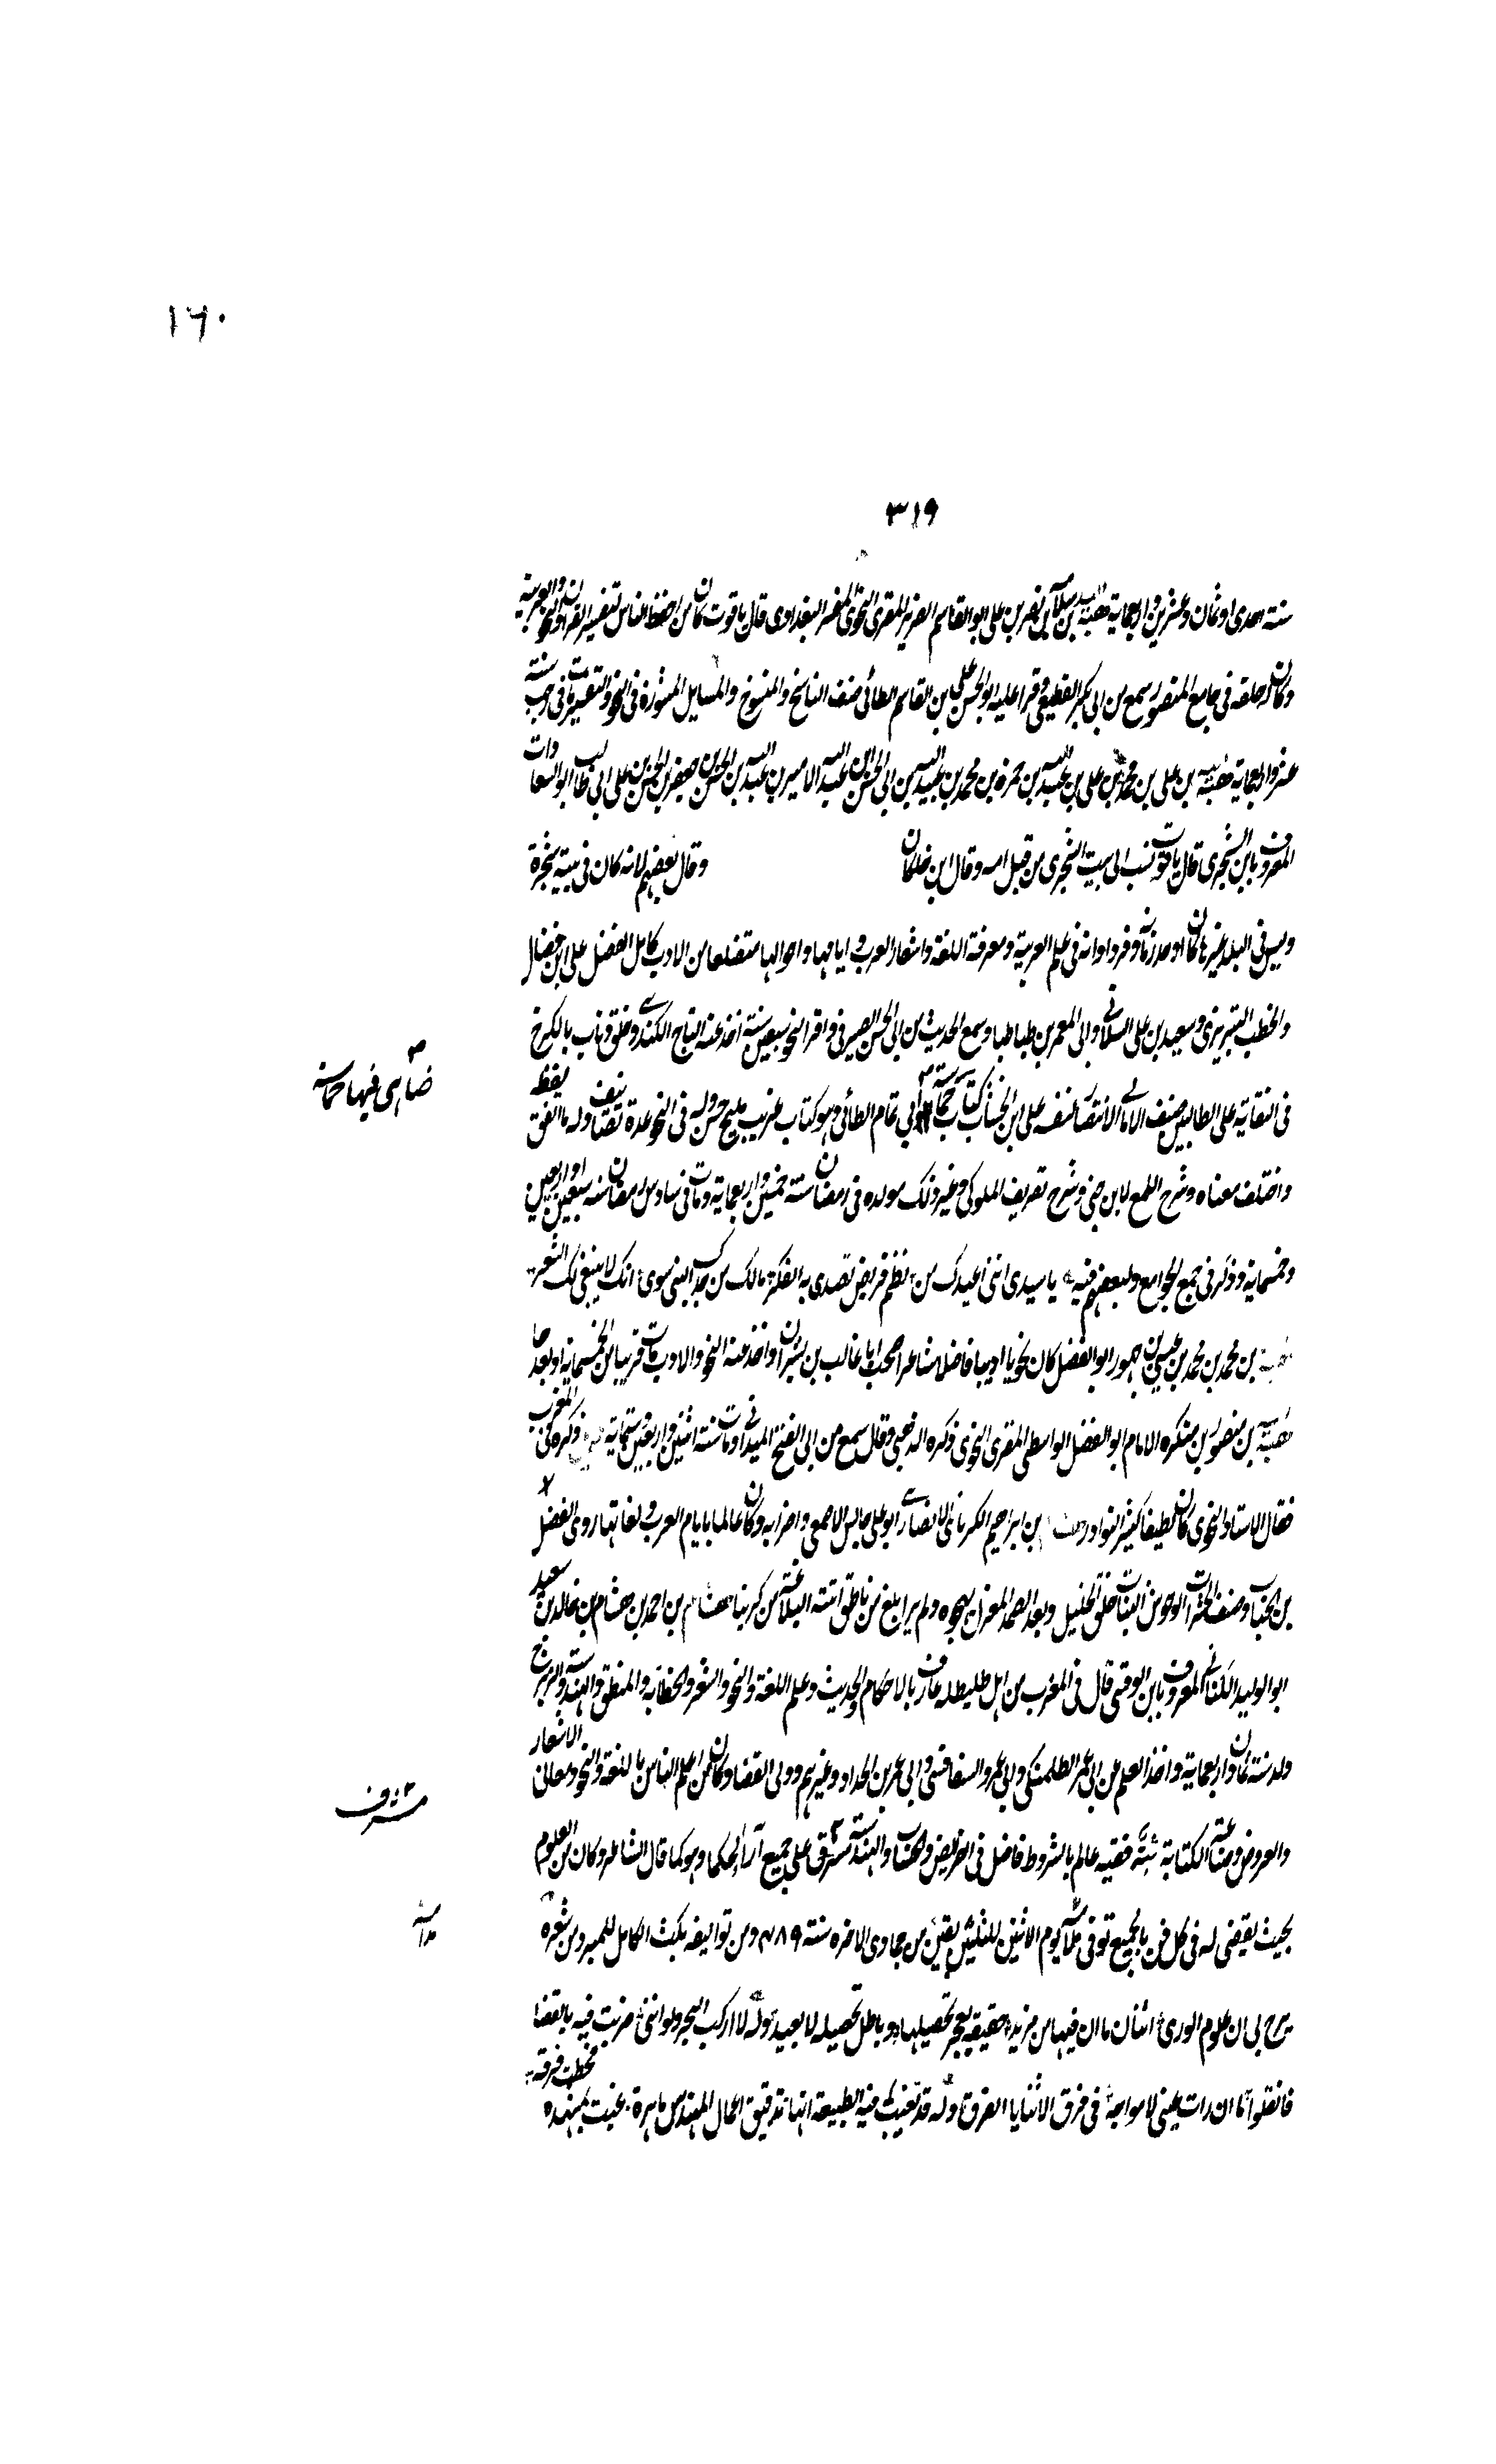 ١٦٠
٣١٩
سنة احدى او ثمان وعشرين واربعماية هبة الله بن سلامة ابى نصر بن على ابو القاسم الضرير المقرى النحوى المفسر البغدادى قال ياقوت كان من احفظ الناس لتفسير القرآن والنحو والعربية
وكان له حلقه فى جامع المنصور سمع من ابى بكر القطيعى وقرا عليه ابو الحسن على بن القاسم الطائى صنف الناسخ والمنسوخ والمسايل المنثورة فى النحو والتفسير مات فى رجب سنة
عشر واربعماية هبة الله بن على بن محمد بن على بن عبد الله بن حمزة بن محمد بن عبيد الله بن ابى الحسن بن عبد الله الامير بن عبد الله بن الحسن بن جعفر بن الحسن بن الحسن بن على بن ابى طالب ابو السعادات
المعروف بابن الشجرى قال ياقوت نسب الى بيت الشجرى من قبل امه وقال ابن خلكان وقال بعضهم لانه كان فى بيته شجرة
وليس فى البلد غيرها كان اوحد زمانه وفرد اوانه فى علم العربية ومعرفة اللغة واشعار العرب وايامها واحوالها متضلعا من الادب كامل الفضل على ابن فضال
والخطيب التبريزى وسعيد بن على السلالى وابى المعمر بن طباطبا وسمع الحديث من ابى الحسن الصيرفى واقرا النحو سبعين سنة اخذ عنه التاج الكندى وخلق وناب بالكرخ
فى النقابة على الطالبيين صنف الامالى الانتصار لنفسه على ابن الخشاب كتاب حماسة ابى تمام الطائى وهو كتاب غريب مليح حسن وله فى النحو عدة تصانيف وله ما اتفق لفظه
واختلف معناه وشرح اللمع لابن جنى وشرح تصريف الملوكى وغير ذلك مولده فى رمضان سنة خمسين واربعماية ومات فى سادس رمضان سنة سبعين او اربعين
وخمسماية وذكر فى جمع الجوامع ولبعضهم فيه يا سيدى انى اعيذك من نظم قريض تصدى به الفكر مالك من جدك النبى سوى انك لا ينبغى لك الشعر
هبة الله بن محمد بن محمد بن عيسى بن جهور ابو الفضل كان نحويا اديبا فاضلا شاعرا صحب ابا غالب بن بشران واخذ عنه النحو والادب مات قريبا من الخمسماية او بعدها
هبة الله بن منصور بن منكره الامام ابو الفضل الواسطى المقرى النحوى ذكره الذهبى وقال سمع من ابى الفتح الميدانى ومات سنة اثنين واربعين وستماية ذكره فى المغرب
فقال الاستاد النحوى كان لطيفا كثير النوادر هشام بن ابراهيم الكرنبائى الانصارى ابو على جالس الاصمعى واضرابه وكان عالما بايام العرب ولغاتها روى الفضل
بن الحباب وصنف الحشرات الوحوش النبات خلق الخيل وبعد الصمد المعذل يهجوه ولم ير ابلغ من ناطق اتته البلاغة من كربنا هشام بن احمد بن هشام بن خالد بن سعيد
ابو الوليد الكنانى المعروف بابن الوقشى قال فى المغرب من اهل طليطله عارف بالاحكام والحديث وعلم اللغة والنحو والشعر والخطابة والمنطق والهندسة والزيج
ولد سنة ثمان واربعماية واخذ العلم عن ابى عمر الطلمنكى وابى عمرو السفاقسى وابى عمر بن الحداد وغيرهم وولى القضا وكان من اعلم الناس باللغة والنحو ومعانى الاشعار
والعروض وصناعة الكتابة شبه فقيه عالم بالشروط فاضل فى الفرايض والحساب والهندسة مشرق على جميع آراء الحكما وهو كما قال الشاعر وكان من العلوم
بحيث يقضى له فى كل فن بالجميع توفى يوم الاثنين لليلتين بقين من جمادى الاخره سنة ٤٨٩ ومن تواليفه نكت الكامل للمبرد ومن شعره
برح بى ان علوم الورى اثنان ما ان فيهما من مزيد حقيقه يعجز تحصيلها وباطل تحصيله لا يفيد وله لا اركب البحر ولو اننى ضربت فيه بالعصا
فانفلق ما ان رات عينى لا مواجه فى فرق الا ثنايا الفرق وله قد بينت فيه الطبيعة انها بدقيق اعمال المهندس ماهرة عنيت بمبسمه فخطت فوقه
ضاهى فيها حماسه
مشرف